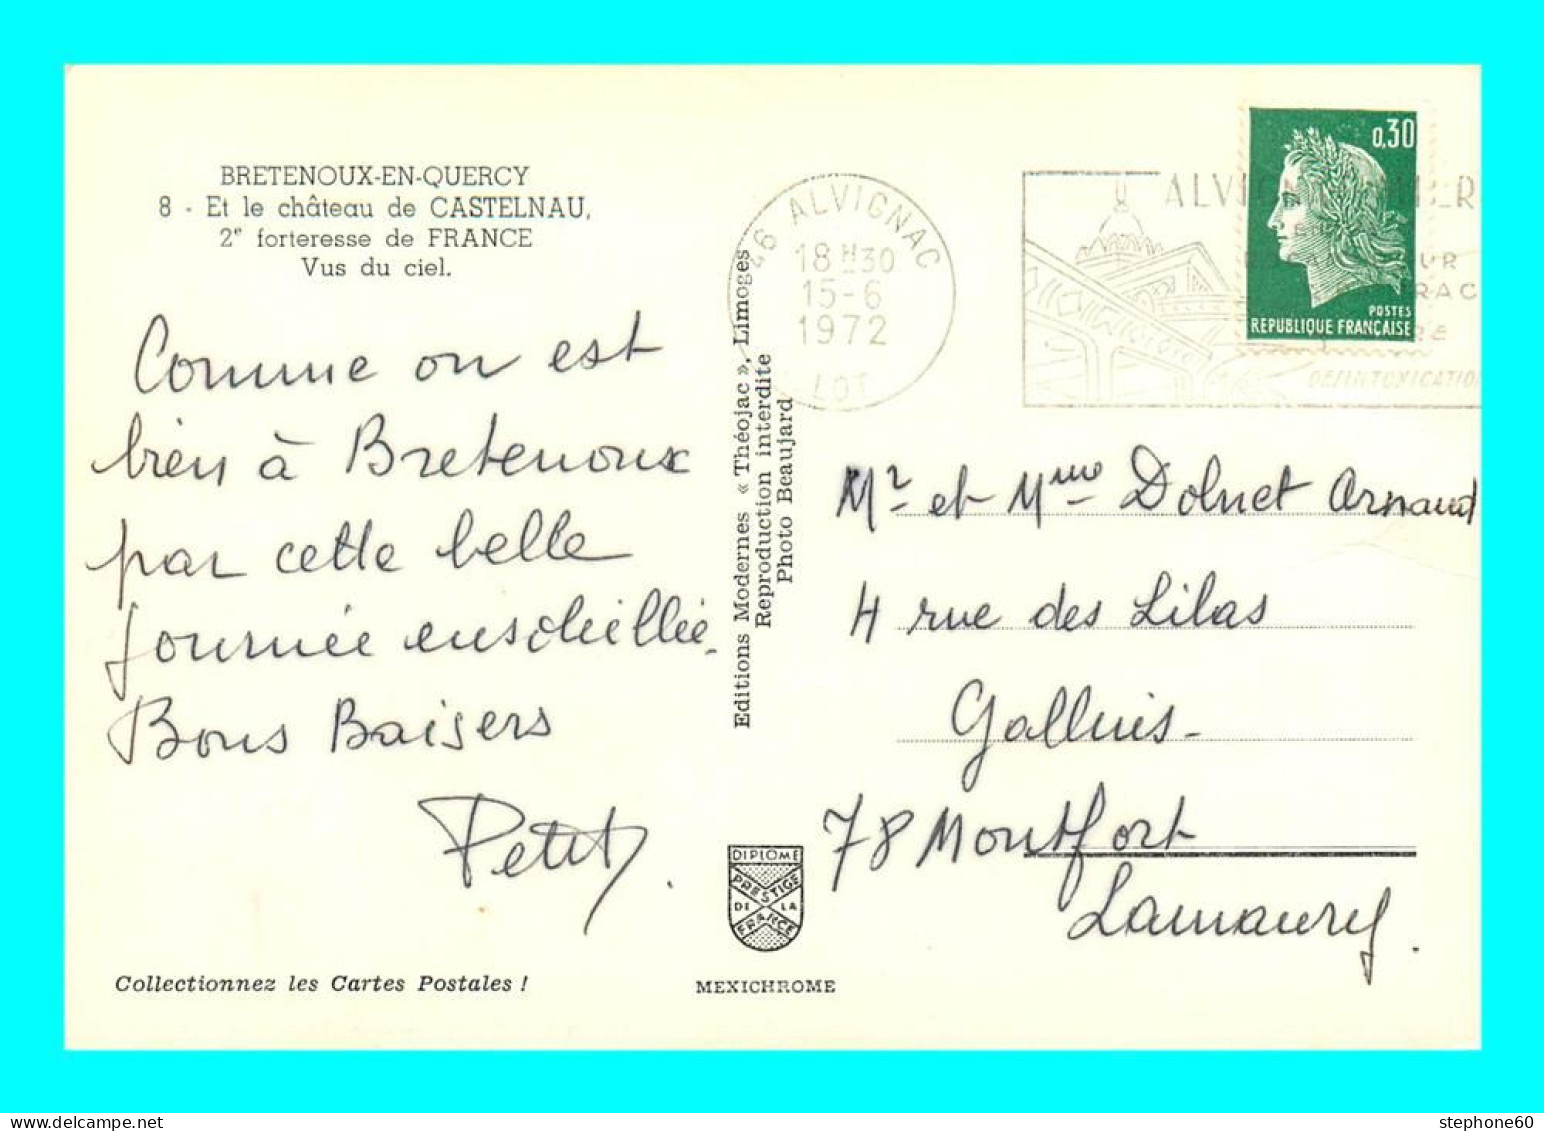 BRETENOUX-EN-QUERCY
8 - Et le château de CASTELNAU,
2e forteresse de FRANCE
Vus du ciel.
Comme on est
bien à Bretenoux
par cette belle
journée ensoleillée.
Bons Baisers
Petit
Collectionnez les Cartes Postales !
Editions Modernes « Théojac », Limoges
Reproduction interdite
Photo Beaujard
DIPLOME
PRESTIGE
DE LA
FRANCE
MEXICHROME
46 ALVIGNAC
18 H30
15-6
1972
LOT
0,30
POSTES
REPUBLIQUE FRANÇAISE
DESINTOXICATION
Mr et Mme Dolnet Arnaud
4 rue des Lilas
Galluis-
78 Montfort
Lamaury.
stephone60